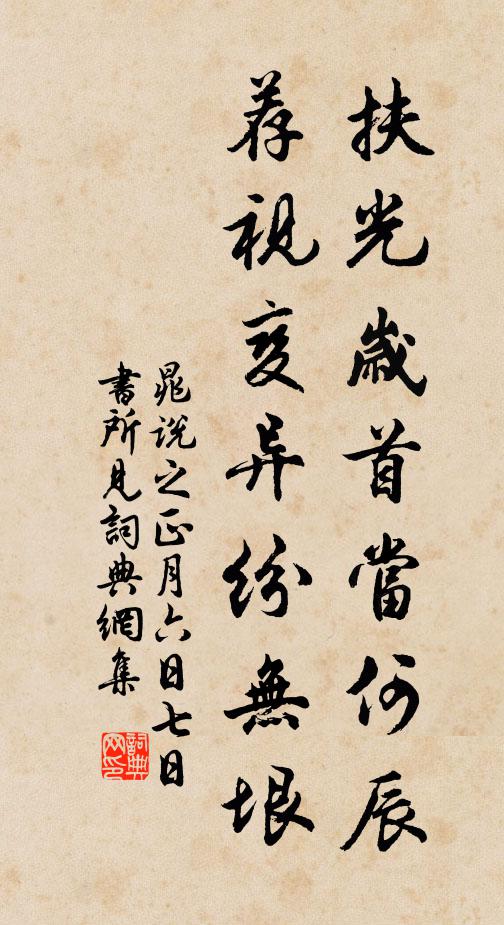 扶光歲首當何辰
荐視变异紛無垠
晁說之正月六日七日
書所見詞典網集
詞典
网印